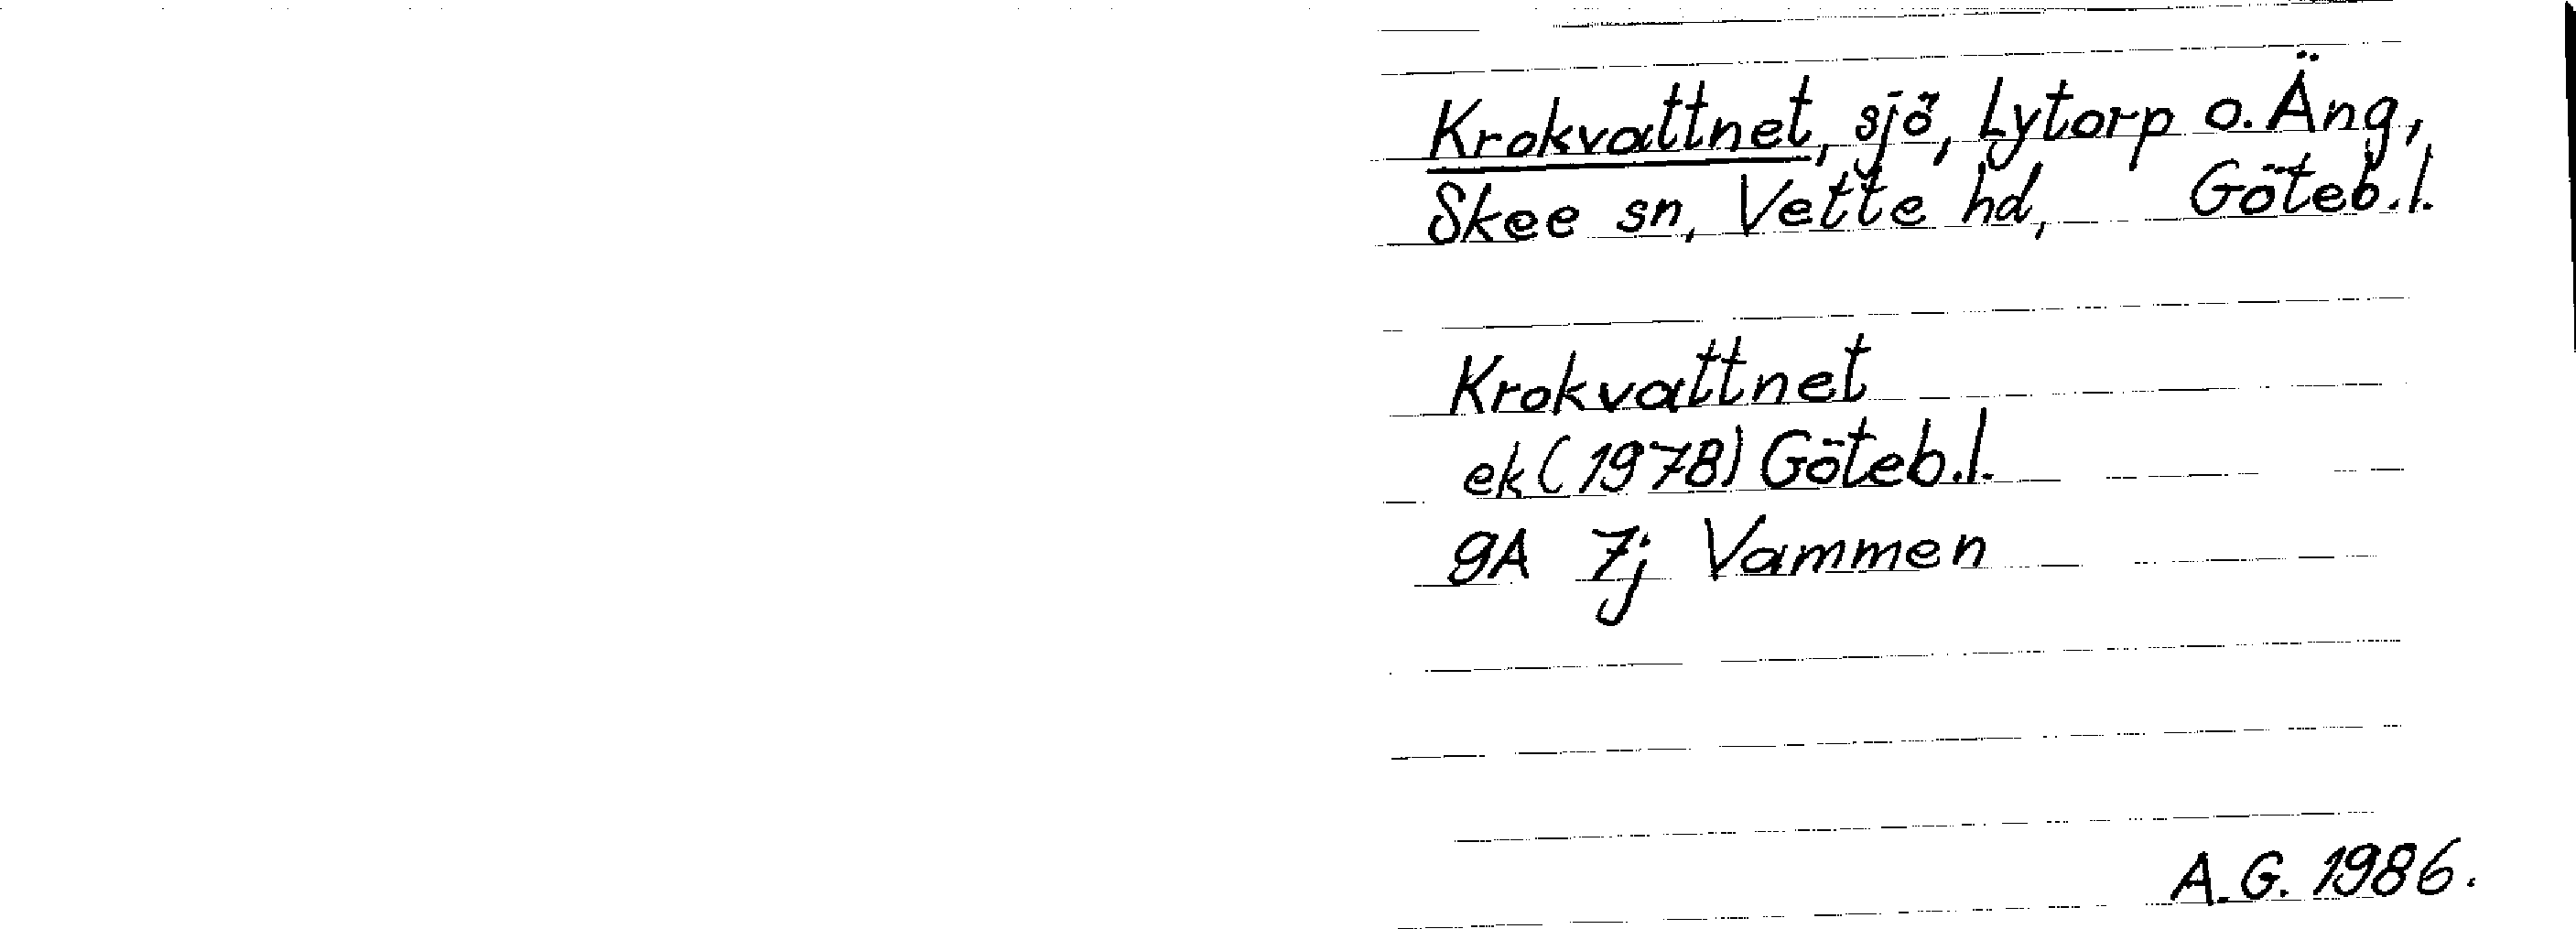 Krokvattnet, sjö, Lytorp o. Äng,
Skee sn, Vette hd, Göteb.l.
Krokvattnet
ek (1978) Göteb.l.
9A 7j Vammen
A.G. 1986.